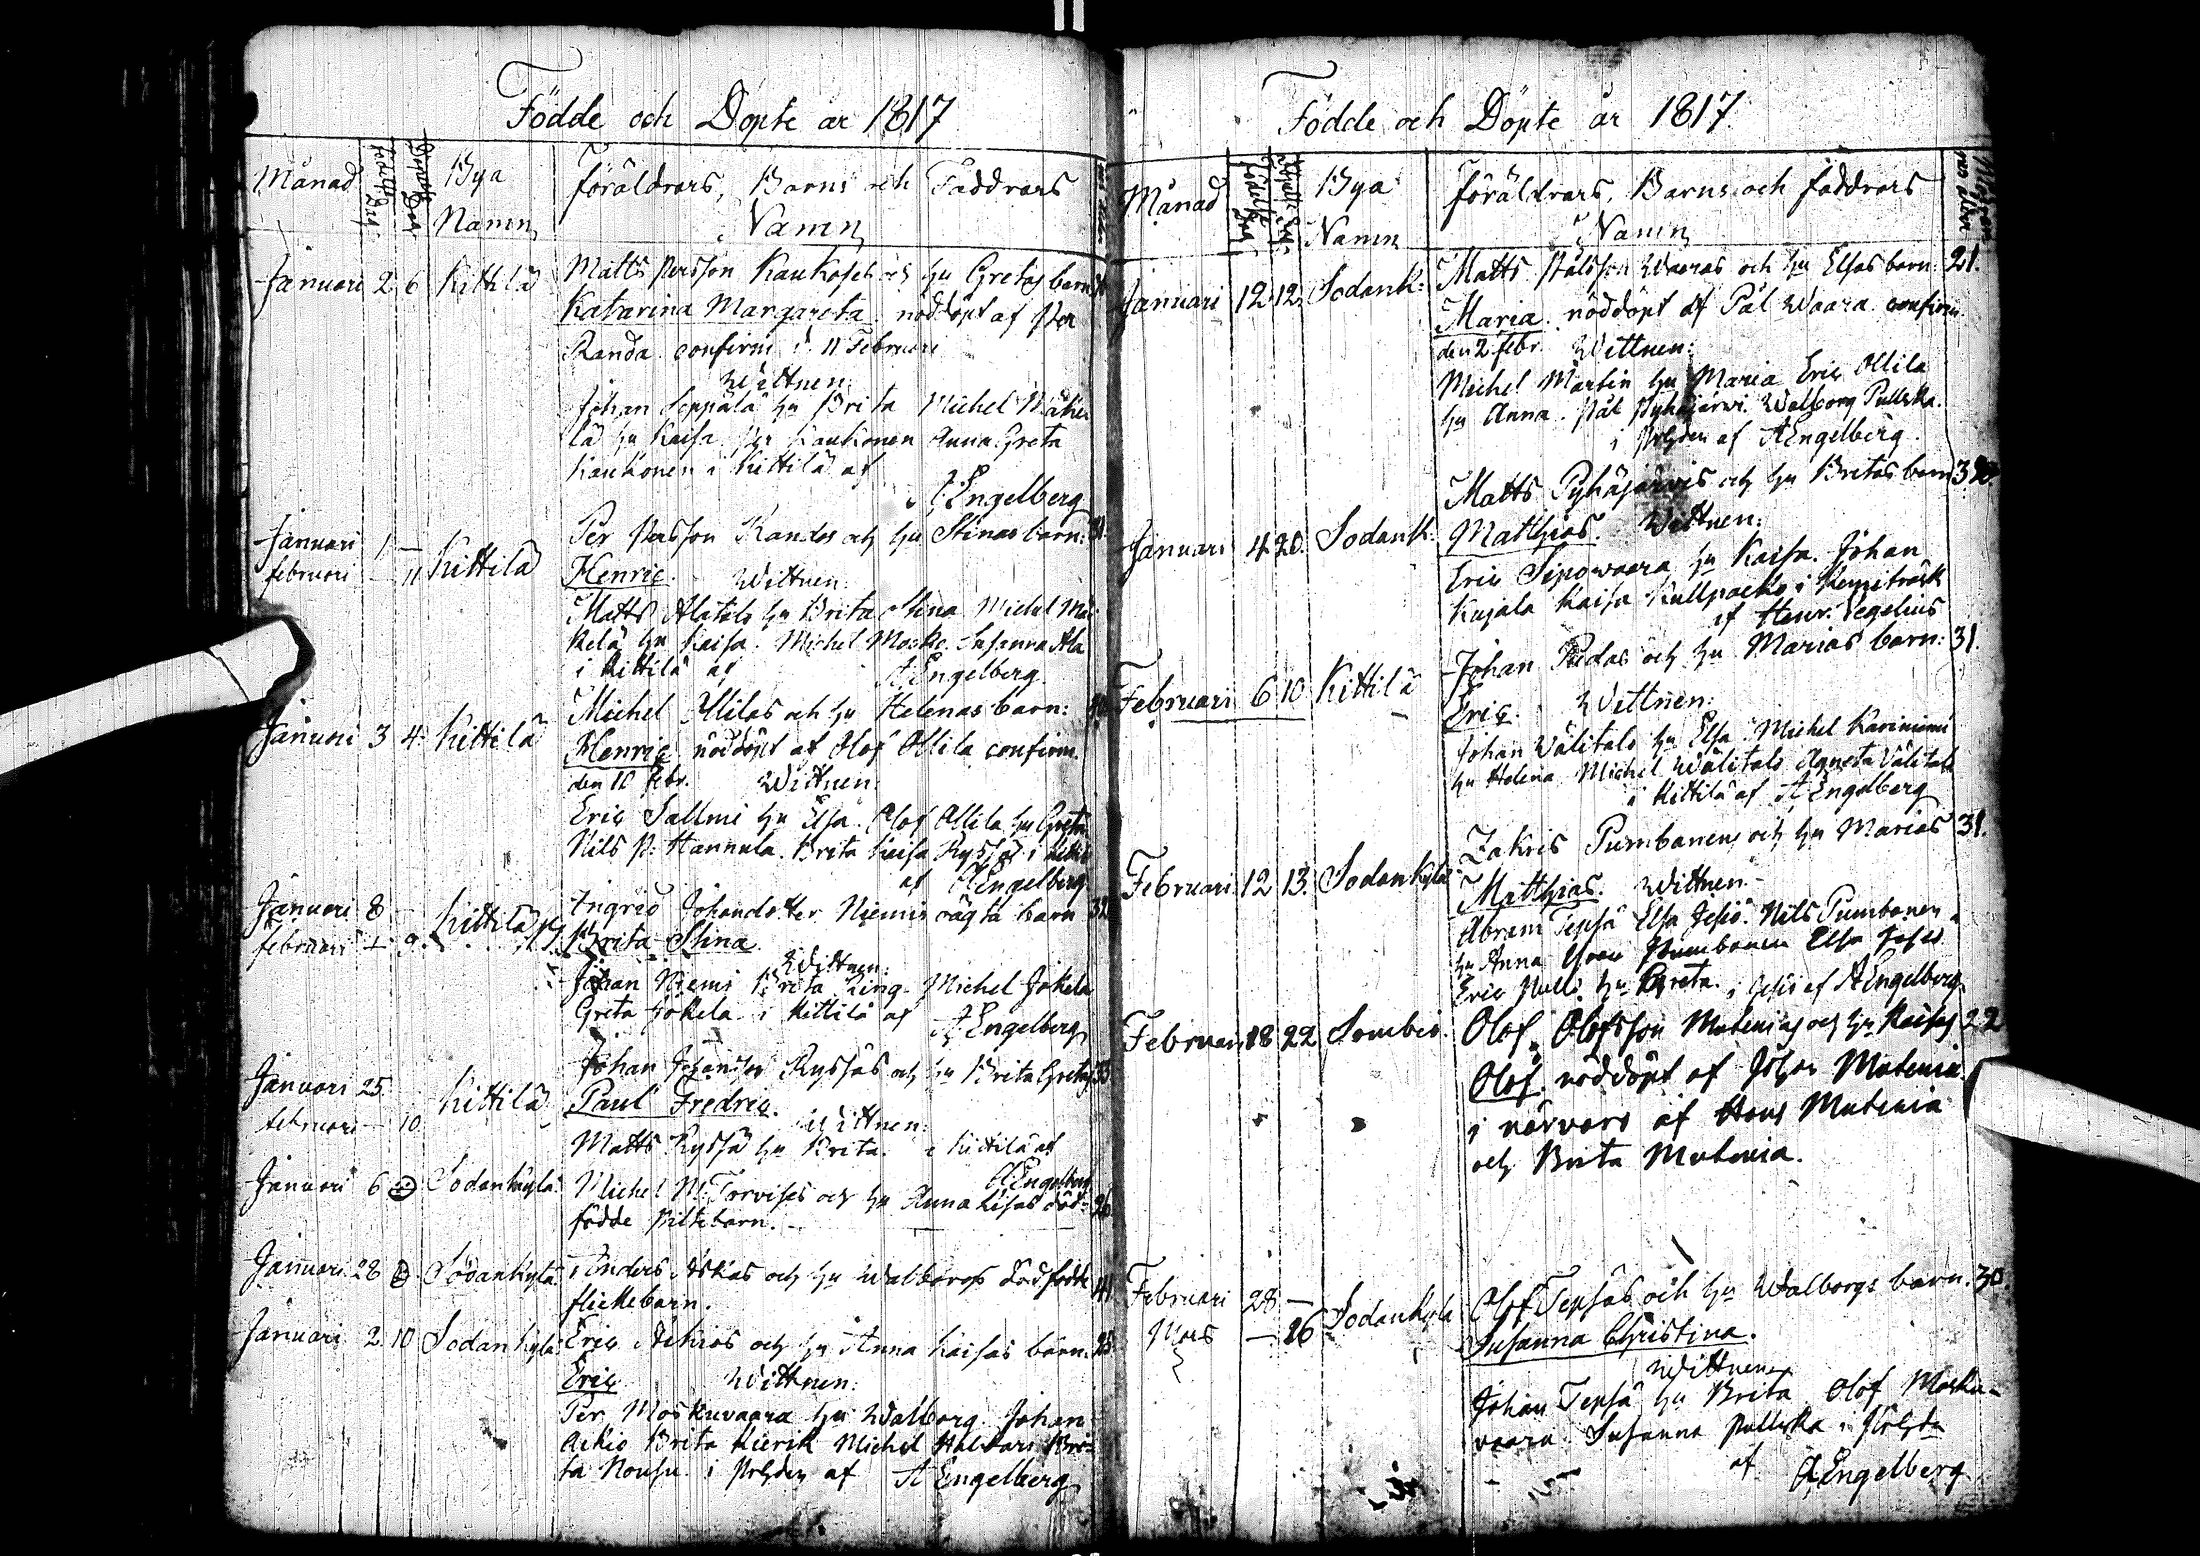 Födde och Döpte år 1817
Månad Födelse Dag Döpelse Dag Bya Namn föräldrars, Barns och Faddrars Namn
Januari 2 6 Kittilä Matts Persson Kaukosch och hu Gretas barn
Katarina Margareta nöddöpt af Per
Randa confirm d. 11 Februari
Wittnen:
Johan Seppälä hu Brita Michel Mäke
lä hu Kaisa Per Kaukonen Anna Greta
Kaukonen i Kittilä af
A Engelberg
Januari 1 — Kittilä Per Persson Randas och hu Stinas barn: 31.
februari — 11 Henric. Wittnen:
Matts Alatalo hu Brita Stina Michel Mä
kelä hu Kaisa. Michel Susanna Ala
i Kittilä af A Engelberg.
Januari 3 4. Kittilä Michel Ollilas och hu Helenas barn: 40
Henric nöddöpt af Olof Ollila confirm.
den 10 febr. Wittnen:
Eric Sallmi hu Elsa. Olof Ollila hu Greta
Nils P: Hannula. Brita Kaisa Ryssä i
af A Engelberg
Januari 8 — Kittilä Ingrid Johansdotter Niemis oägta barn 32
februari — 9. Brita Stina
Wittnen:
Johan Niemi Brita Ring Michel Jokela
Greta Jokela i Kittilä af
A Engelberg
Januari 25. Kittilä Johan Ryssäs och hu Brita Gretas 33
februari — 10 Paul Fredric.
Wittnen:
Matts Ryssä hu Brita. i Kittilä af
A Engelberg
Januari 6 Sodankylä Michel M: Torvises och hu Anna Lisas död- 26
födde piltebarn.
Januari 28 Sodankylä Anders Askas och hu Walborgs dödfödde 41
flickebarn.
Januari 2 10 Sodankylä Eric Aikios och hu Anna Kaisas barn. 25
Eric Wittnen:
Per Moskuvaara hu Walborg. Johan
Aikio Brita Kierik Michel Brit-
ta Nousu. i Prljden af A Engelberg
Födde och Döpte år 1817.
Månad Födelse Dag Döpelse Dag Bya Namn föräldrars, Barns och faddrars Namn
Januari 12 12 Sodank: Matts Pålsson Waaras och hu Elsas barn: 21.
Maria nöddöpt af Pål Waara confirm.
den 2 febr. Wittnen:
Michel Martin hu Maria Eric Ollila
hu Anna. Pål Pyhäjärwi. Walborg Pulkka.
i af A Engelberg.
Januari 4 20. Sodank: Matts Pyhäjärwis och hu Britas barn 32
Matthias. Wittnen:
Eric Sipowaara hu Kaisa. Johan
Kujala Kaisa Kullpacko i Kemiträsk
af Henr: Wegelius
Februari 6 10 Kittilä Johan Pudas och hu Marias barn: 31.
Eric. Wittnen:
Johan Wälitalo hu Elsa Michel Kariniemi
hu Helena Michel Wälitalo Agneta Välitalo
i Kittilä af A Engelberg
Februari 12 13. Sodankylä Zakris Pumbanens och hu Marias 31.
Matthias. Wittnen:
Abram Tepsä Elsa Jesiö. Nils Pumbanen
hu Anna Pumbanen Elsa Jesiö
Eric hu Greta. i Jesiö af A Engelberg.
Februari 18 22 Sombio Olof Olofsson Mutenias och hu Kaisas 22
Olof. nöddöpt af Johan Mutenia
i närvaro af Hans Mutenia
och Brita Mutenia.
Februari 28 — Sodankylä Olof Tepsäs och hu Walborgs barn. 30
Mars — 16 Susanna Christina.
Wittnen
Johan Tepsä hu Brita Olof Mosku-
vaara. Susanna Pulkka i
af A Engelberg